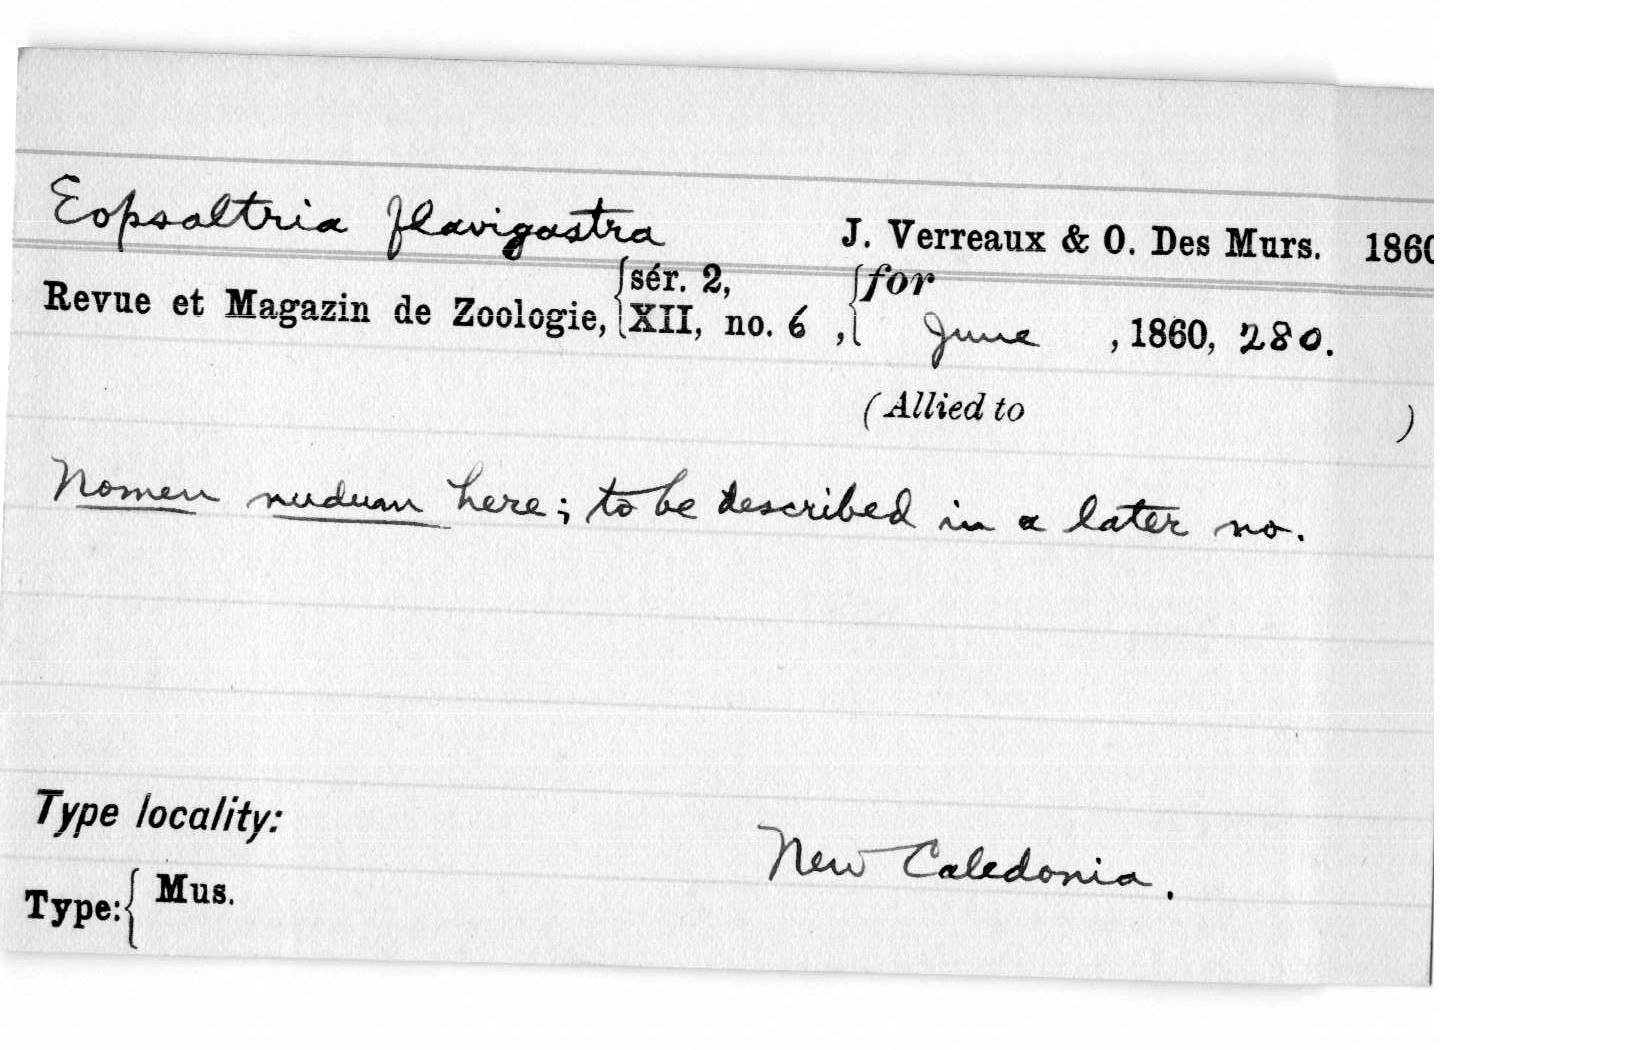 Eopsaltria flavigastra J. Verreaux & O. Des Murs. 1860
Revue et Magazin de Zoologie, {sér. 2, XII, no. 6, {for June, 1860, 280.
(Allied to )
Nomen nudum here; to be described in a later no.
Type locality:
New Caledonia.
Type: { Mus.